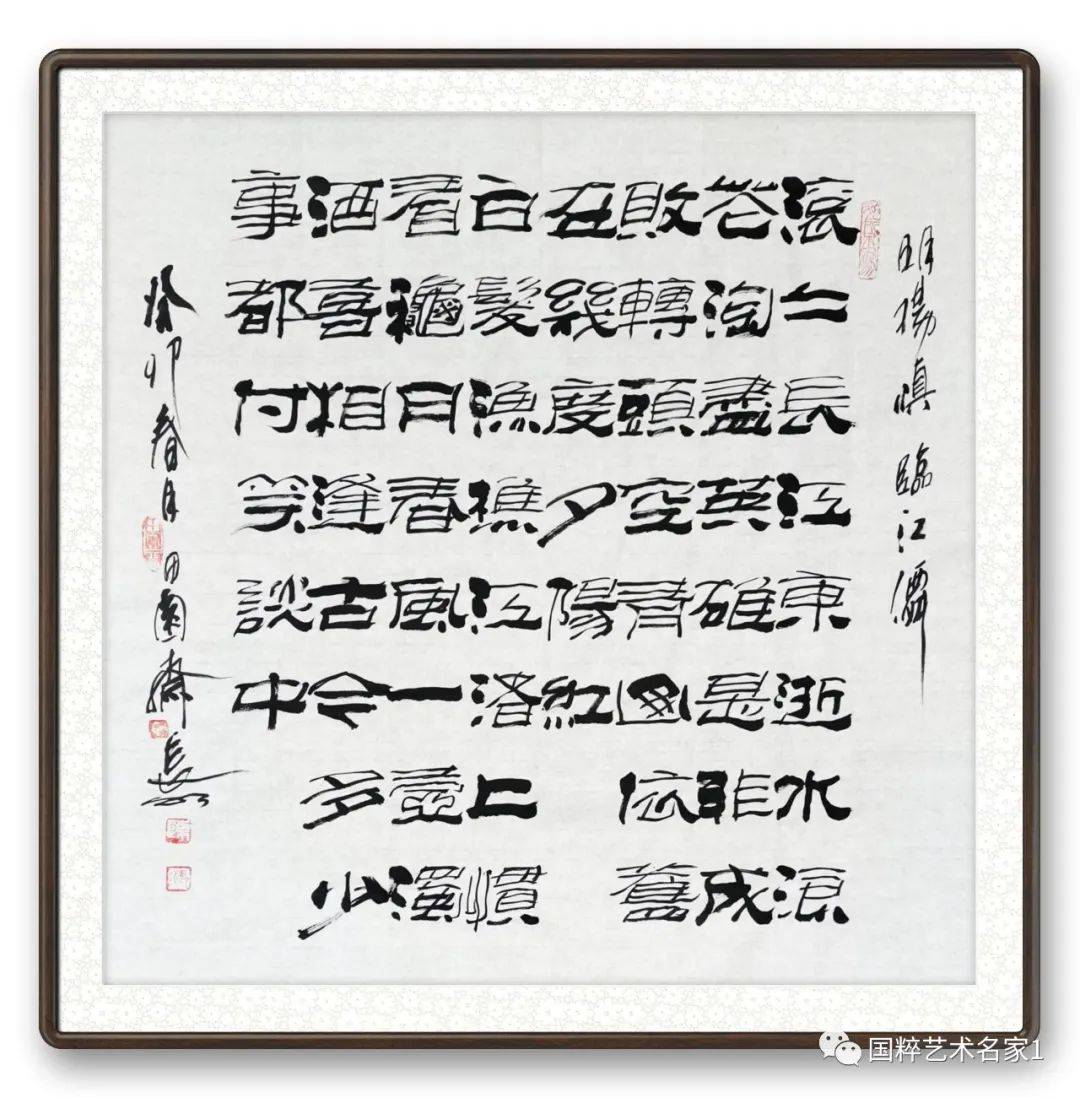 明楊慎臨江僊
滾二長江東逝水浪
花淘盡英雄是非成
敗轉頭空青依舊
在幾度夕陽紅
白髮漁樵江渚上慣
看龝月春風一壺濁
酒喜相逢古今多少
事都付笑談中
癸卯春月田園齋
国粹艺术名家1